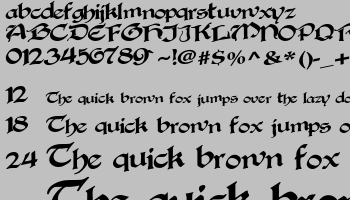 abcdefghijklmnopqrstuvwxyz
ABCDEFGHIJKLMNOPQR
0123456789 ~!@#$%^&*()-_+
12 The quick brown fox jumps over the lazy do
18 The quick brown fox jumps o
24 The quick brown fox
The quick bro